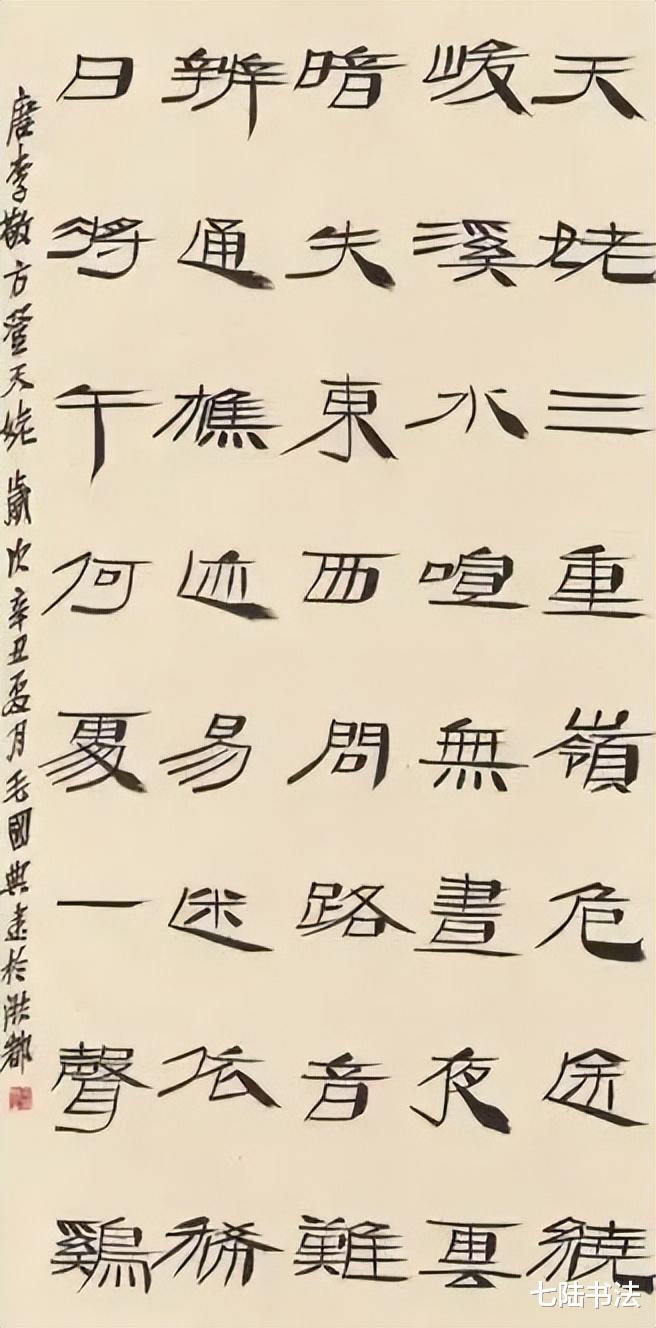 天姥三重嶺危途繞
峻溪水喧無晝夜雲
暗失東西問路音難
辨通樵迹易迷稀
日將午何處一聲鷄
唐李敬方登天姥 歲次辛丑夏月毛國典書於洪都
七陆书法